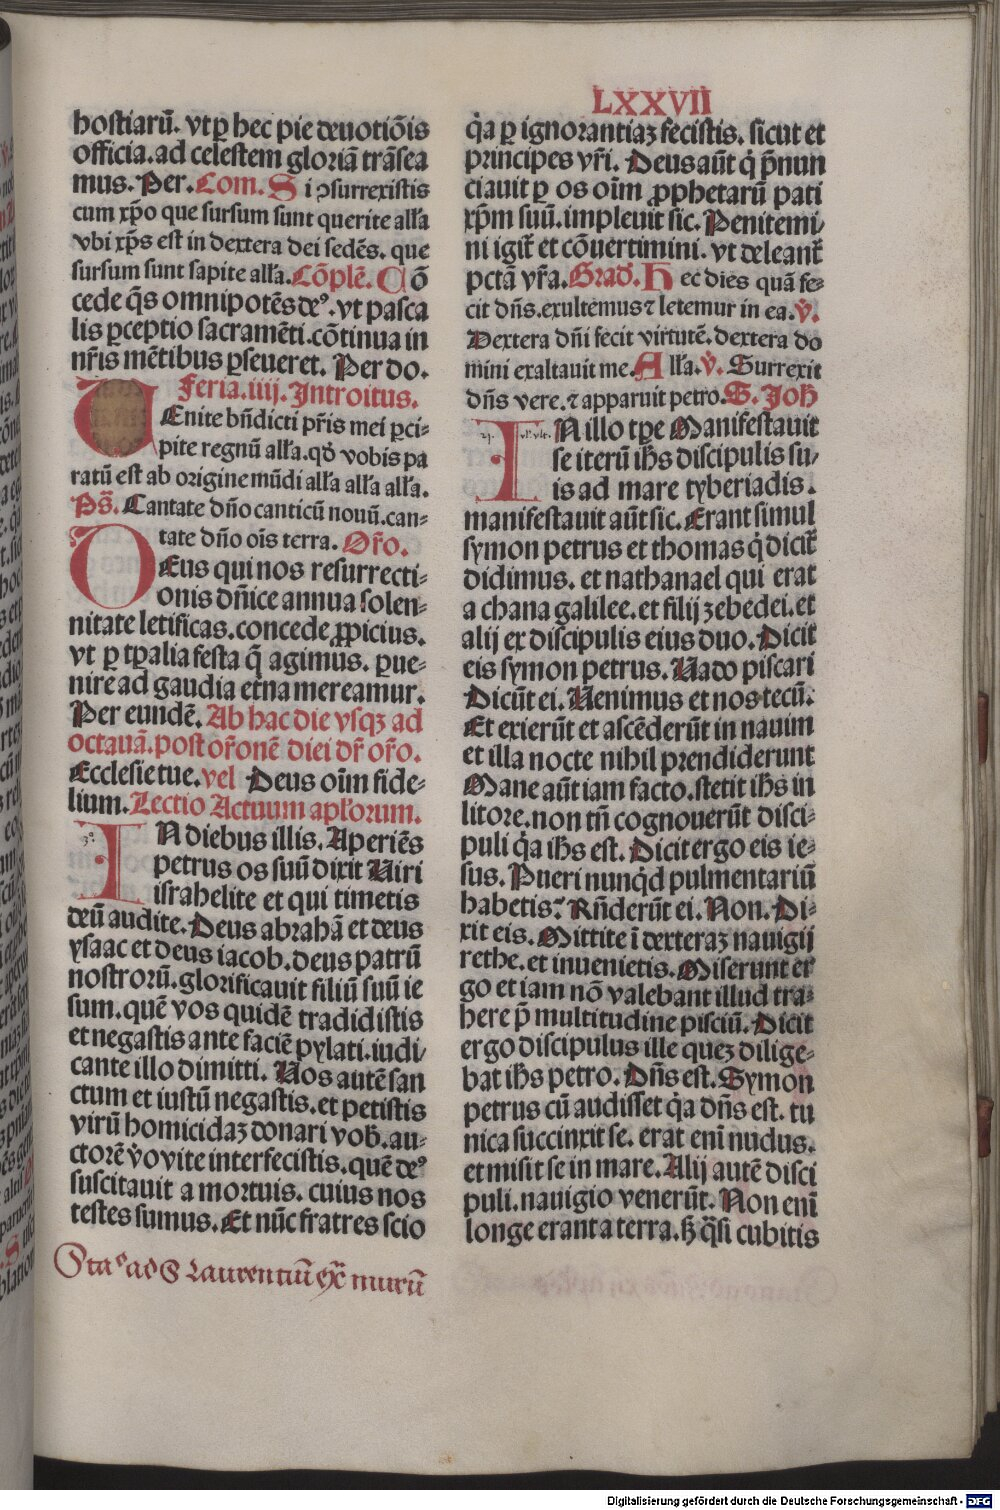 LXXVII
hostiarū. vt ꝑ hec pie deuotiōis
officia. ad celestem gloriā trāsea
mus. Per. Com. Si ↄsurrexistis
cum xp̄o que sursum sunt querite alľa
vbi xp̄s est in dextera dei sedēs. que
sursum sunt sapite alľa. Cōplē. Cō
cede q̄s omnipotēs deꝰ. vt pasca
lis ꝑceptio sacramēti. cōtinua in
nr̄is mētibus ꝑseueret. Per do.
Feria. iiij. Introitus.
VEnite bn̄dicti pr̄is mei ꝑci-
pite regnū alľa. qď vobis pa
ratū est ab origine mūdi alľa alľa alľa.
Ps̄. Cantate dn̄o canticū nouū. can-
tate dn̄o ois̄ terra. Or̄o.
DEus qui nos resurrecti-
onis dn̄ice annua solen-
nitate letificas. concede ꝓpicius.
vt ꝑ tp̄alia festa q̄ agimus. ꝑue-
nire ad gaudia etna mereamur.
Per eundē. Ab hac die vsqꝫ ad
octauā. post or̄onē diei dr̄ or̄o.
Ecclesie tue. vel Deus oīm fide-
lium. Lectio Actuum apľorum.
IN diebus illis. Aperiēs
petrus os suū dixit Uiri
israhelite et qui timetis
deū audite. Deus abrahā et deus
ysaac et deus iacob. deus patrū
nostrorū. glorificauit filiū suū ie
sum. quē vos quidē tradidistis
et negastis ante faciē pylati. iudi-
cante illo dimitti. Uos autē san
ctum et iustū negastis. et petistis
virū homicidaꝫ donari vob̄. au-
ctorē v̊o vite interfecistis. quē deꝰ
suscitauit a mortuis. cuius nos
testes sumus. Et nūc fratres scio
Staᵒ ad S Laurentiū ex̄ murū
q̇a ꝑ ignorantiaꝫ fecistis. sicut et
principes vr̄i. Deus aūt q̇ p̄nun
ciauit ꝑ os oīm ꝓphetarū pati
xp̄m suū. impleuit sic. Penitemi-
ni igit̄ et cōuertimini. vt deleant̄
pctā vr̄a. Grad̄. Hec dies quā fe-
cit dn̄s. exultemus ⁊ letemur in ea. v̊.
Dextera dn̄i fecit virtutē. dextera do
mini exaltauit me. Alľa. v̊. Surrexit
dn̄s vere. ⁊ apparuit petro. S. Joh̄
IN illo tꝑe Manifestauit
se iterū ih̄s discipulis su-
is ad mare tyberiadis.
manifestauit aūt sic. Erant simul
symon petrus et thomas q̇ dicit̄
didimus. et nathanael qui erat
a chana galilee. et filij zebedei. et
alij ex discipulis eius duo. Dicit
eis symon petrus. Uado piscari
Dicūt ei. Uenimus et nos tecū.
Et exierūt et ascēderūt in nauim
et illa nocte nihil prendiderunt
Mane aūt iam facto. stetit ih̄s in
litore. non tn̄ cognouerūt disci-
puli q̇a ih̄s est. Dicit ergo eis ie-
sus. Pueri nunq̇d pulmentariū
habetis? Rn̄derūt ei. Non. Di-
xit eis. Mittite ī dexteraꝫ nauigij
rethe. et inuenietis. Miserunt er
go et iam nō valebant illud tra-
here p̄ multitudine pisciū. Dicit
ergo discipulus ille queꝫ dilige-
bat ih̄s petro. Dn̄s est. Symon
petrus cū audisset q̇a dn̄s est. tu
nica succinxit se. erat enī nudus.
et misit se in mare. Alij autē disci
puli. nauigio venerūt. Non enī
longe erant a terra. sꝫ q̄si cubitis
Digitalisierung gefördert durch die Deutsche Forschungsgemeinschaft - DFG